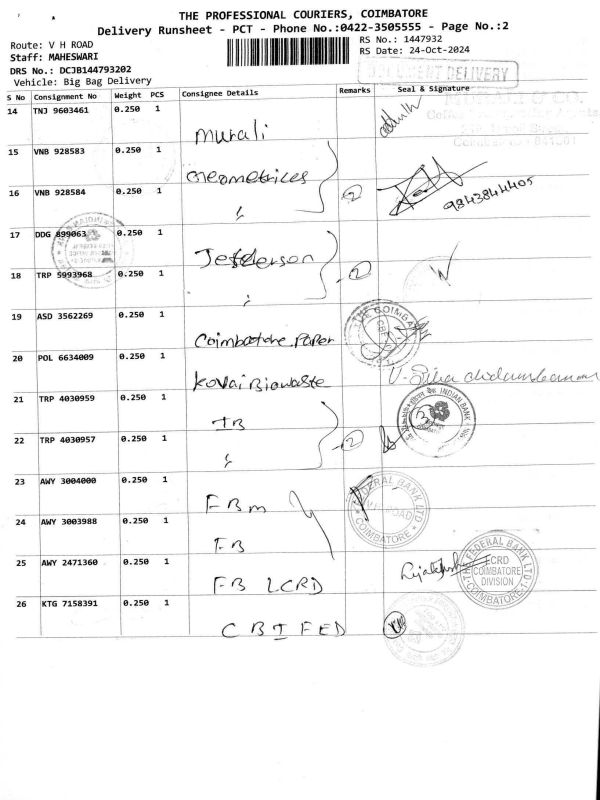 THE PROFESSIONAL COURIERS, COIMBATORE
Delivery Runsheet - PCT - Phone No.:0422-3505555 - Page No.:2
Route: V H ROAD
RS No.: 1447932
Staff: MAHESWARI
RS Date: 24-Oct-2024
DRS No.: DCJB144793202
Vehicle: Big Bag Delivery
DOCUMENT DELIVERY
S No Consignment No Weight PCS Consignee Details Remarks Seal & Signature
14 TNJ 9603461 0.250 1 Murali
15 VNB 928583 0.250 1 Geometrices
16 VNB 928584 0.250 1 " 2 9843844405
17 DDG 899063 0.250 1 Jefderson
18 TRP 5993968 0.250 1 " 2
19 ASD 3562269 0.250 1 Coimbatore Paper
THE COIMBA
20 POL 6634009 0.250 1 Kovai Biowaste
21 TRP 4030959 0.250 1 IB
INDIAN BANK
22 TRP 4030957 0.250 1 " 2
23 AWY 3004000 0.250 1 FBM
FEDERAL BANK LTD
V.H. ROAD
COIMBATORE
24 AWY 3003988 0.250 1 FB
25 AWY 2471360 0.250 1 FB LCRD
THE FEDERAL BANK LTD
LCRD
COIMBATORE
DIVISION
COIMBATORE-1
26 KTG 7158391 0.250 1 CBI FED